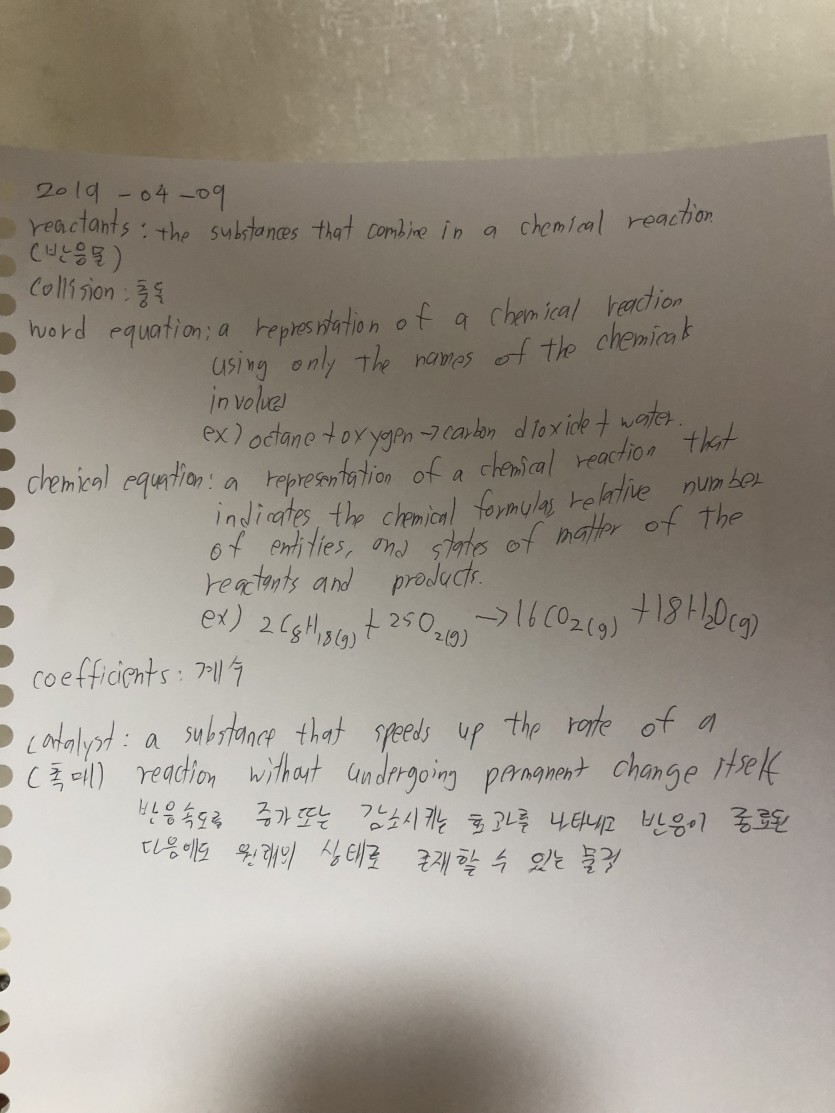 2019 - 04 - 09
reactants : the substances that combine in a chemical reaction
(반응물)
Collision : 충돌
word equation : a represntation of a chemical reaction
using only the names of the chemicals
involved
ex) octane + oxygen → carbon dioxide + water.
chemical equation : a representation of a chemical reaction that
indicates the chemical formulas relative number
of entities, and states of matter of the
reactants and products.
ex) 2C₈H₁₈(g) + 25O₂(g) → 16CO₂(g) + 18H₂O(g)
coefficients : 계수
Catalyst : a substance that speeds up the rate of a
(촉매) reaction without undergoing permanent change itself
반응속도를 증가 또는 감소시키는 효과를 나타내고 반응이 종료된
다음에도 원래의 상태로 존재할 수 있는 물질